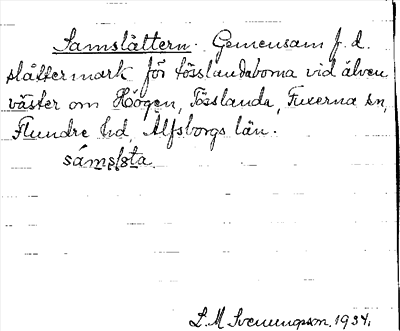 Samslåttern. Gemensam f. d.
slåttermark för Tösslandaborna vid älven
väster om Högen, Tösslanda, Fuxerna sn,
Flundre hd, Älfsborgs län.
sámslǫta
L. M. Svenungsson. 1934.